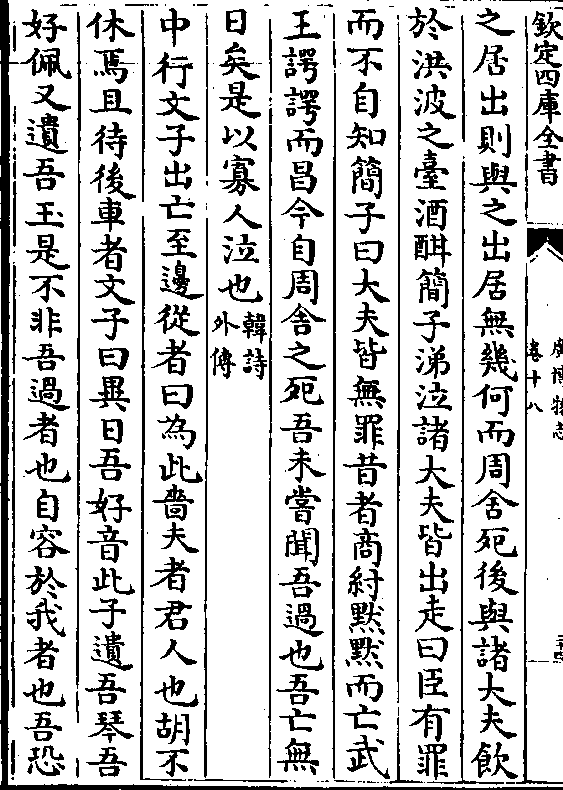 欽定四庫全書
廣博物志
卷十八
之居出則與之出居無幾何而周舍死後與諸大夫飲
於洪波之臺酒酣簡子涕泣諸大夫皆出走曰臣有罪
而不自知簡子曰大夫皆無罪昔者商紂默默而亡武
王諤諤而昌今自周舍之死吾未嘗聞吾過也吾亡無
日矣是以寡人泣也韓詩
外傳
中行文子出亡至邊從者曰為此嗇夫者君人也胡不
休焉且待後車者文子曰異日吾好音此子遺吾琴吾
好佩又遺吾玉是不非吾過者也自容於我者也吾恐